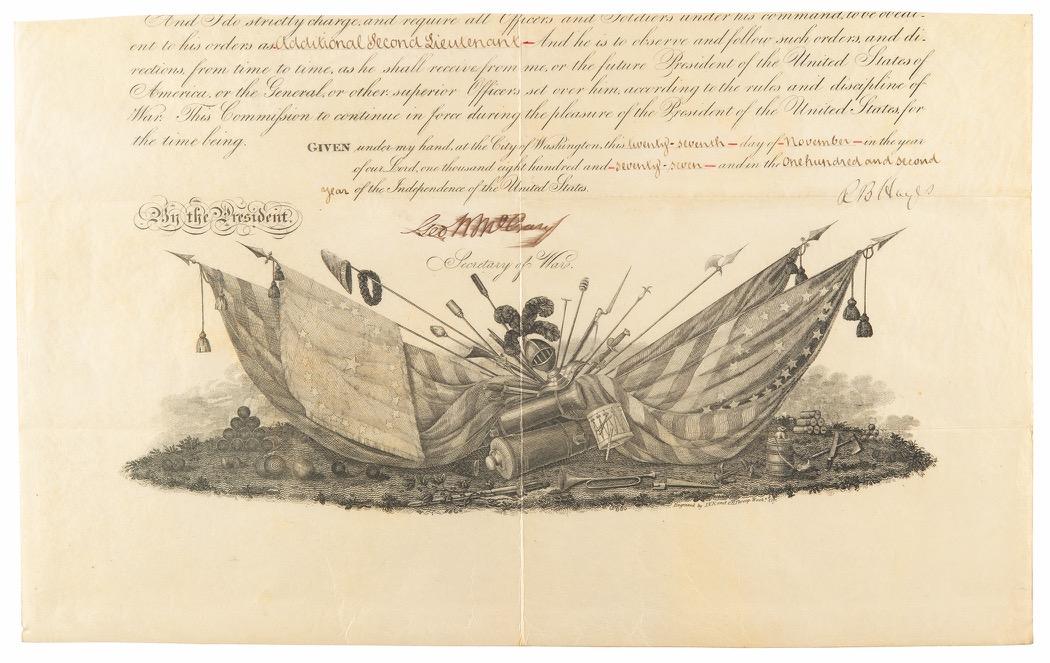 And I do strictly charge, and require all Officers and Soldiers under his command, to be obedi-
ent to his orders as Additional Second Lieutenant — And he is to observe and follow such orders, and di-
rections, from time to time, as he shall receive from me, or the future President of the United States of
America, or the General, or other superior Officers set over him, according to the rules and discipline of
War. This Commission to continue in force during the pleasure of the President of the United States, for
the time being.
GIVEN under my hand, at the City of Washington, this twenty-seventh — day of — November — in the year
of our Lord, one thousand eight hundred and — seventy-seven — and in the one hundred and second
year of the Independence of the United States.
R B Hayes
By the President.
Geo W McCrary
Secretary of War.
Engraved by